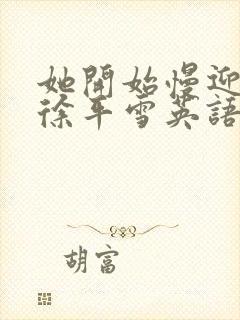 她開始慢迎
徐平雪英語
胡富